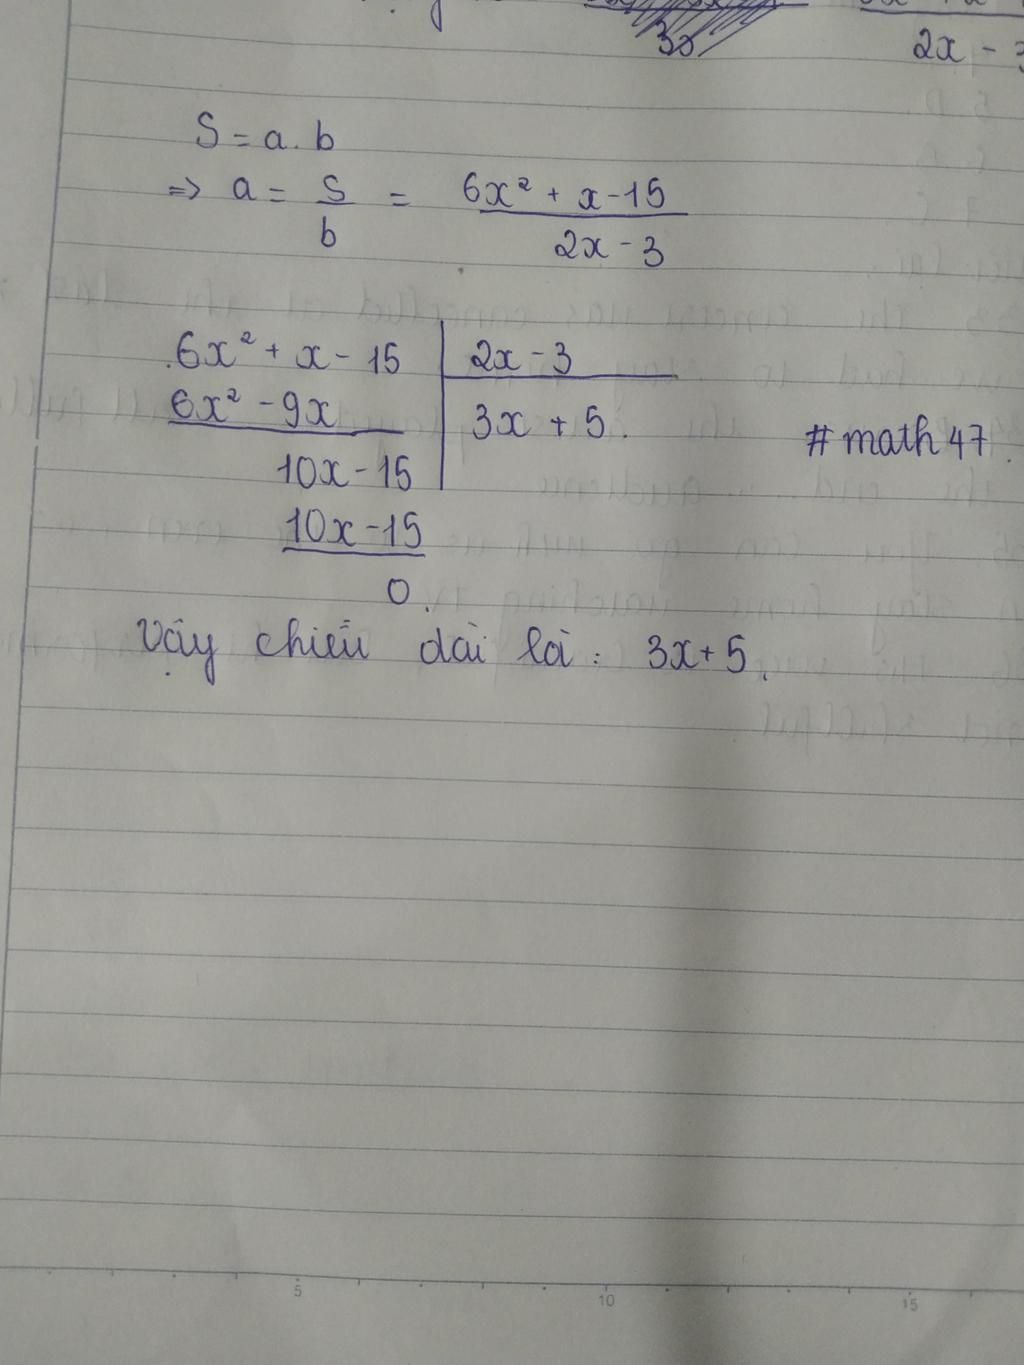 3x
2x - 3
S = a.b
=> a = S/b = 6x² + x - 15 / 2x - 3
6x² + x - 15 | 2x - 3
6x² - 9x | 3x + 5.
# math 47
10x - 15
10x - 15
0.
Vậy chiều dài là : 3x + 5.
5 10 15